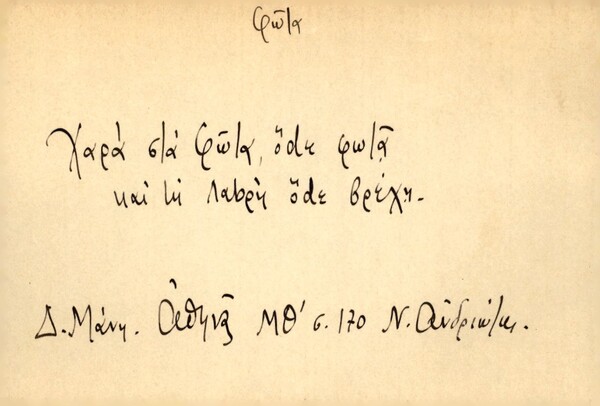 φῶτα
Χαρὰ στὰ Φῶτα, ὅdε φωτᾷ
καὶ τὴ Λαbρὴ ὅdε βρέχη.
Δ. Μάνη. Ἀθηνᾶ ΜΘ' σ. 170 Ν. Ἀνδριώτης.